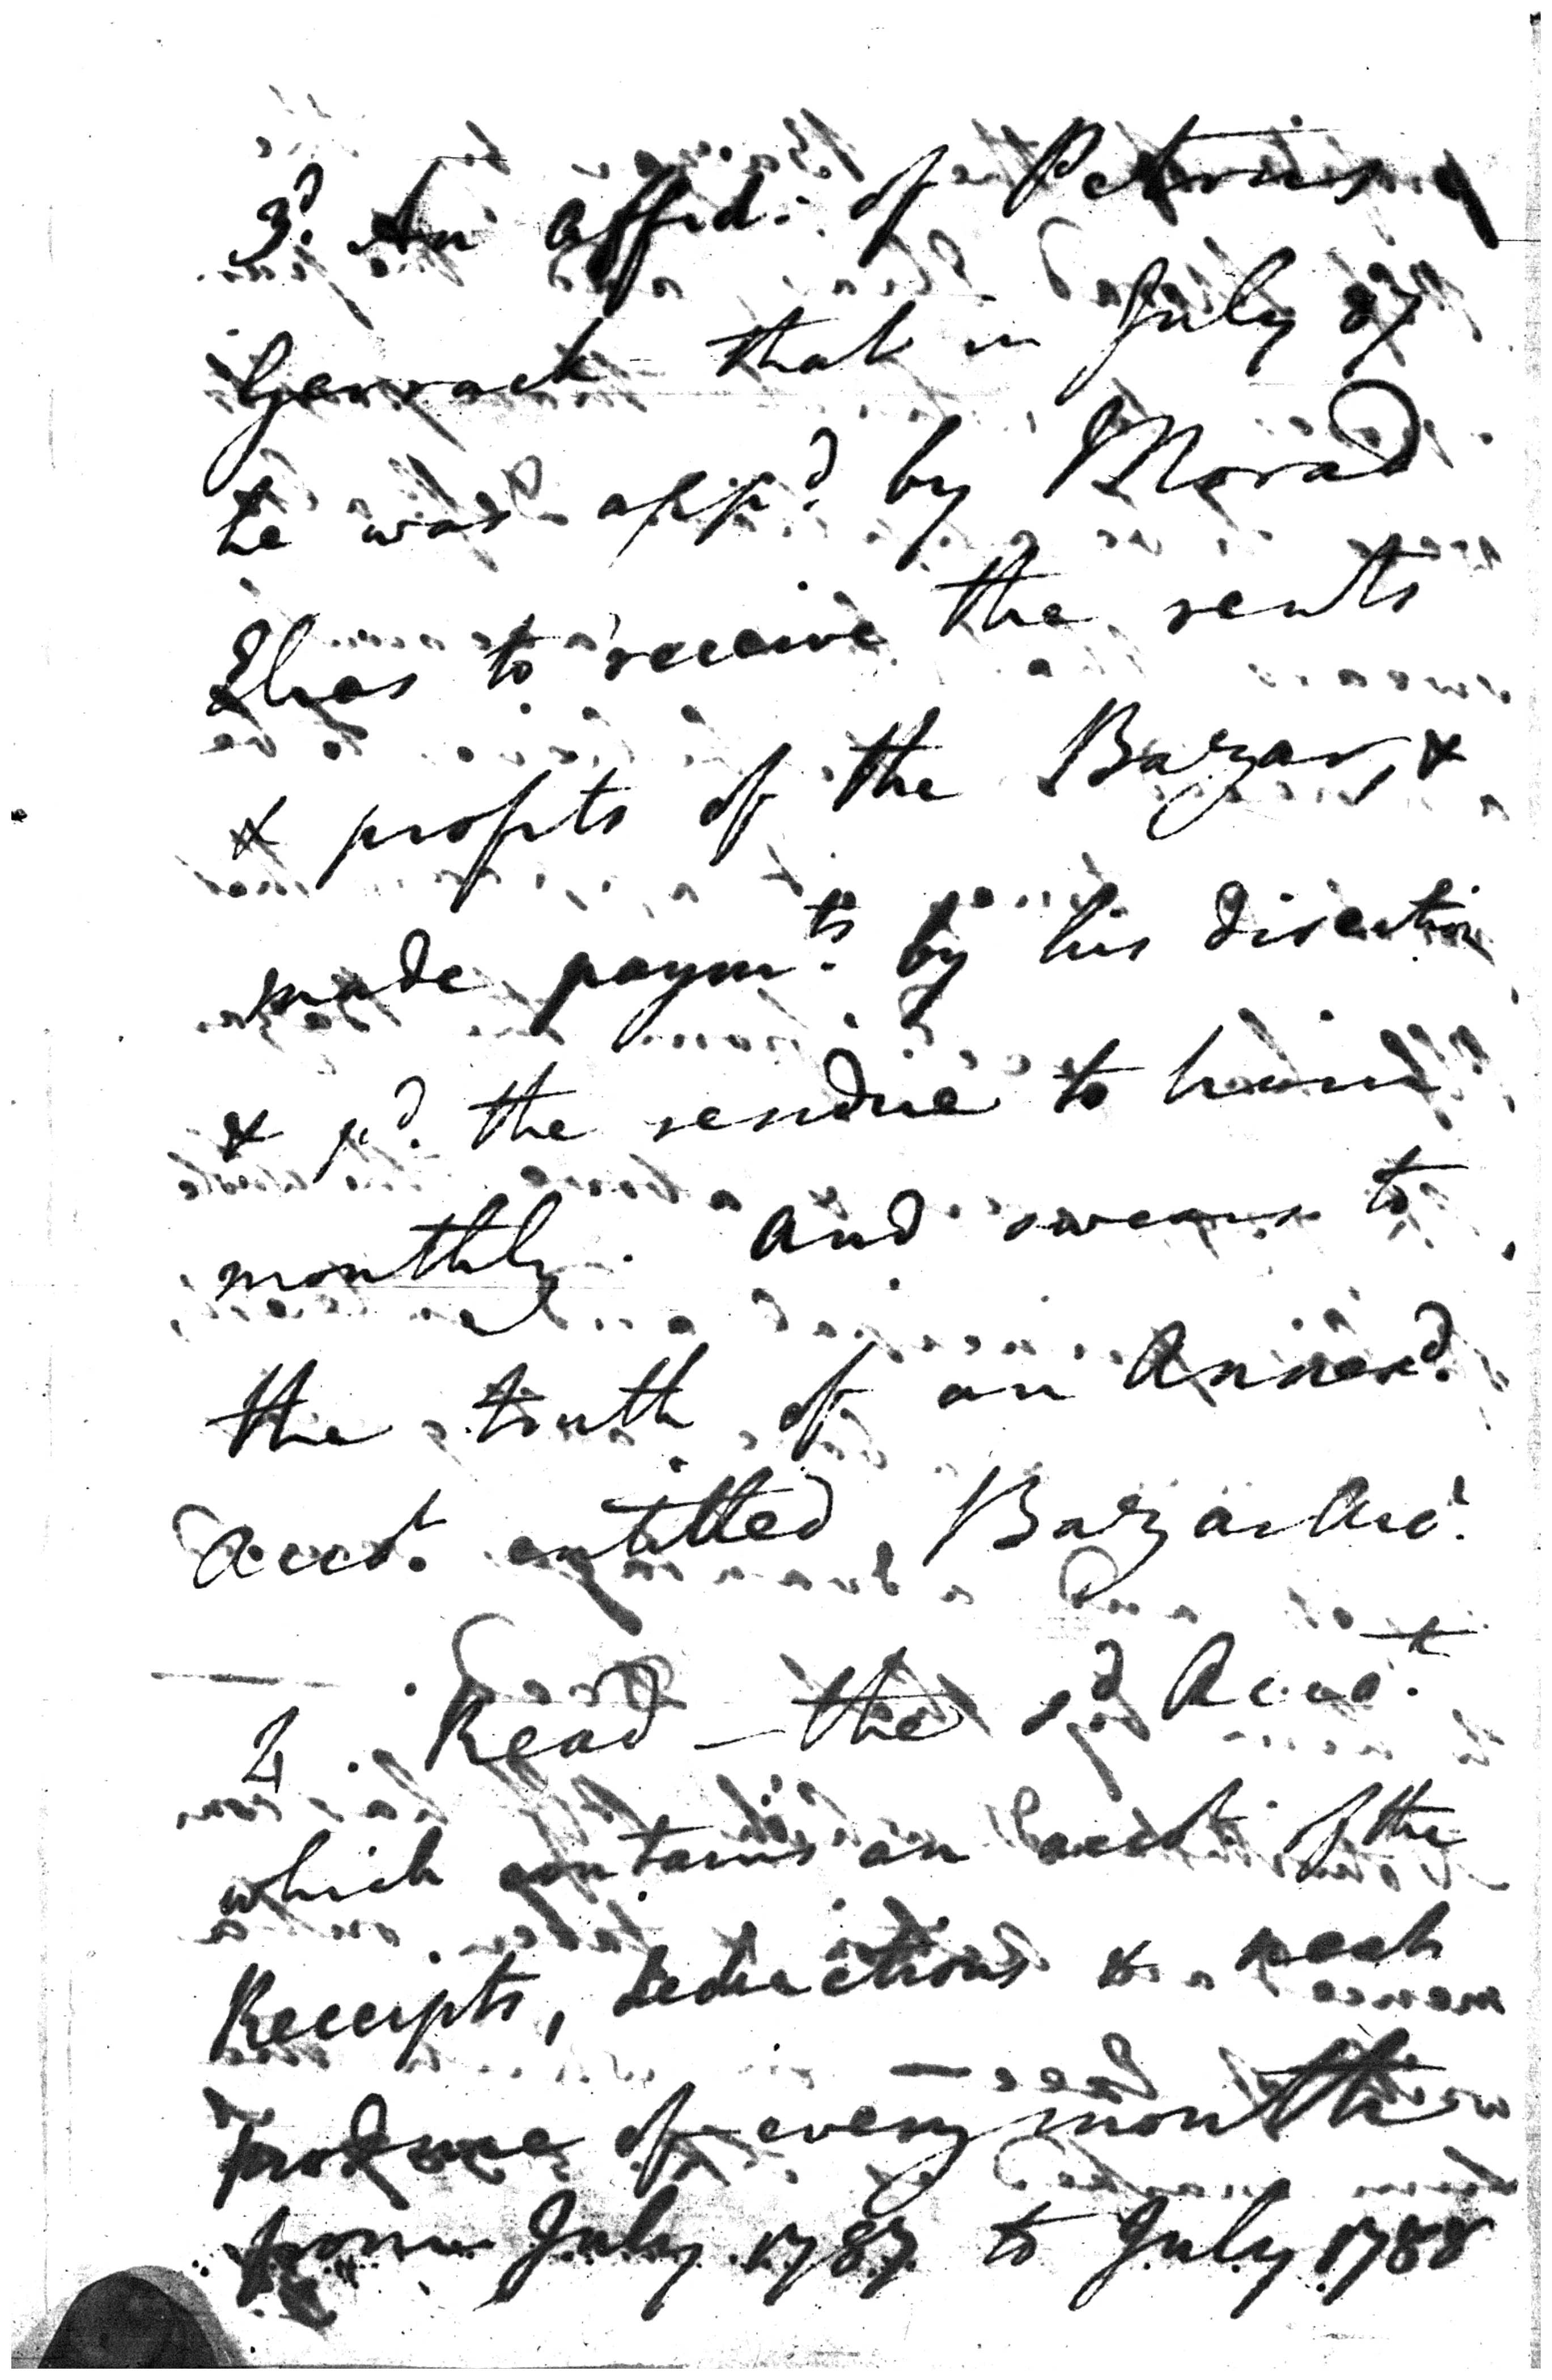 3d. An affid: of Petruis
Gerrack that in July 87
he was app'd. by Morad
Elias to receive the rents
& profits of the Bazar, &
made paym.ts by his direction
& pd. the residue to him
monthly. And swears to
the truth of an Annex'd.
Acco.t entitled Bazar Acc.t
2. Read - the sd Acco.t
which contains an acct of the
Receipts, Deductions & neat
produce of every month
from July 1787 to July 1788